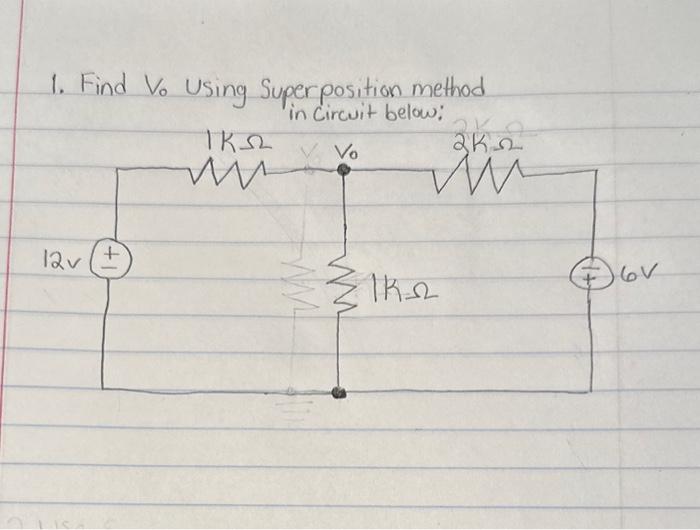 1. Find Vo Using Superposition method
in Circuit below:
1KΩ
Vo
2KΩ
12v
+
-
1KΩ
-
+
6V